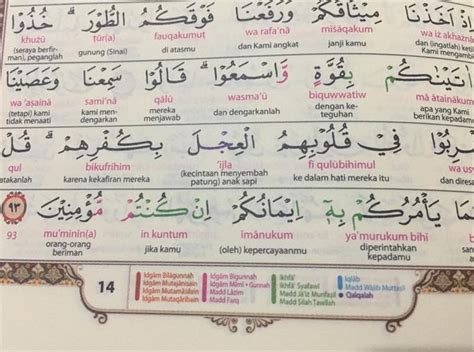 اَخَذْنَا مِيْثَاقَكُمْ وَرَفَعْنَا فَوْقَكُمُ الطُّوْرَۗ خُذُوْا
iż akhażnā mīṡāqakum wa rafa'nā fauqakumuṭ ṭūr(a) khużū
dan (ingatlah) ke janji kamu dan Kami angkat di atasmu gunung (Sinai) (seraya berfir-
man), peganglah
اٰتَيْنٰكُمْ بِقُوَّةٍ وَّاسْمَعُوْاۗ قَالُوْا سَمِعْنَا وَعَصَيْنَا
mā ātainākum biquwwatiw wasma'ū qālū sami'nā wa 'aṣainā
apa yang Kami berikan kepadamu dengan ke-teguhan dan dengarkanlah mereka menjawab kami men-dengarkan (tetapi) kami tidak menaati
رِبُوْا فِيْ قُلُوْبِهِمُ الْعِجْلَ بِكُفْرِهِمْۗ قُلْ
wa us fī qulūbihimul 'ijla bikufrihim qul
dan dires ke dalam hati mereka itu (kecintaan menyembah patung) anak sapi karena kekafiran mereka atakanlah
مَا يَأْمُرُكُمْ بِهٖٓ اِيْمَانُكُمْ اِنْ كُنْتُمْ مُّؤْمِنِيْنَ ٩٣
ya'murukum bihī īmānukum in kuntum mu'minīn(a) 93
diperintahkan kepadamu (oleh) kepercayaanmu jika kamu orang-orang beriman
14
Idgām Bilāgunnah
Idgām Mutajānisain
Idgām Mutamāṡilain
Idgām Mutaqāribain
Idgām Bigunnah
Idgām Mīmī • Gunnah
Madd Lāzim
Madd Farq
Ikhfā'
Ikhfā' Syafawī
Madd Jā'iz Munfaṣil
Madd Ṣilah Ṭawīlah
Iqlāb
Madd Wājib Muttaṣil
Qalqalah